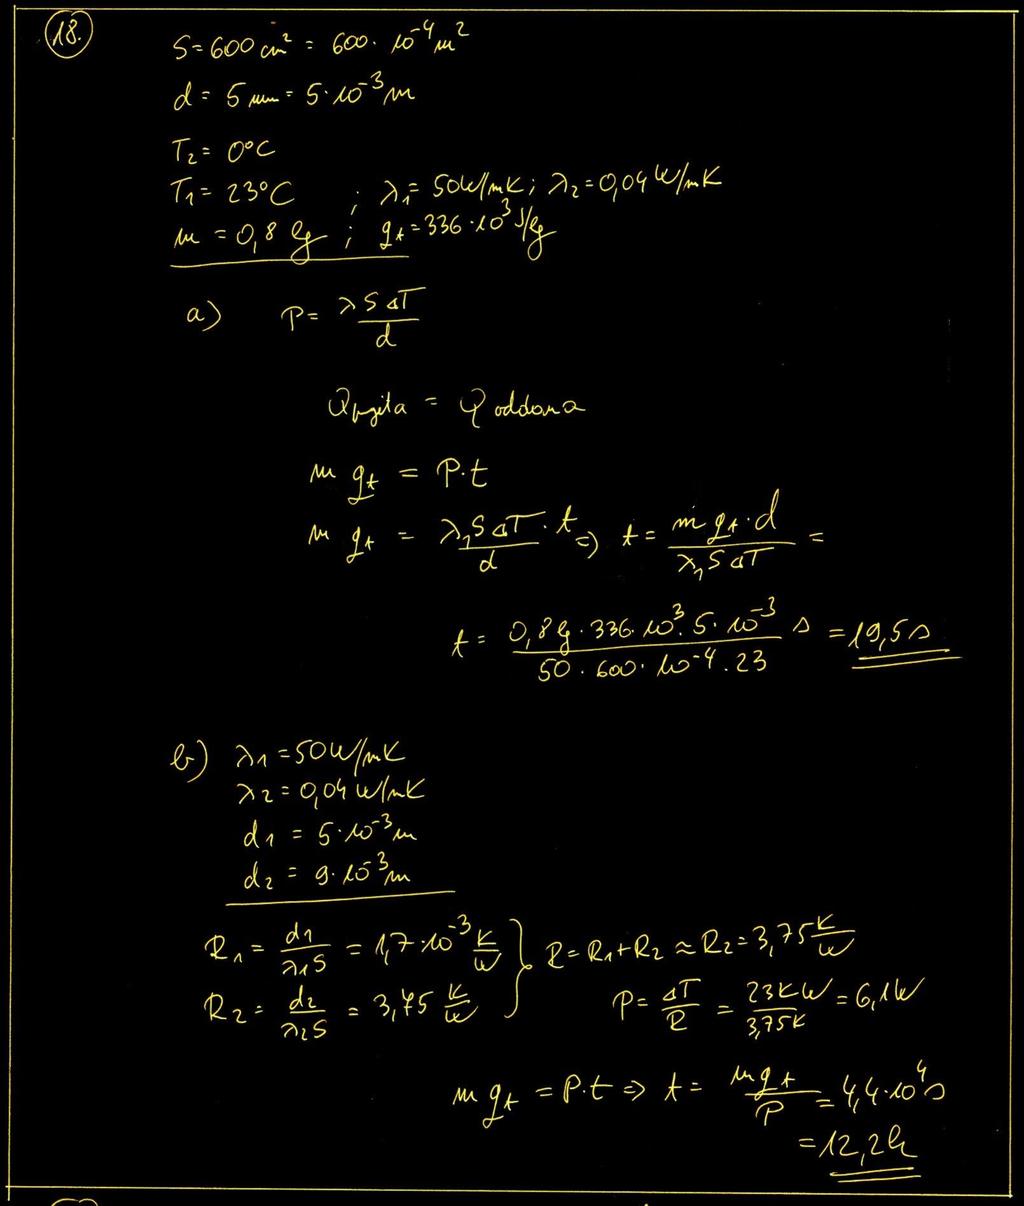 18.
S = 600 cm² = 600 · 10⁻⁴ m²
d = 5 mm = 5 · 10⁻³ m
T₂ = 0°C
T₁ = 23°C ; λ₁ = 50 W/mK ; λ₂ = 0,04 W/mK
m = 0,8 kg ; qₜ = 336 · 10³ J/kg
a) P = λ S ΔT / d
Q = Q oddana
m qₜ = P · t
m qₜ = λ₁ S ΔT / d · t => t = m qₜ · d / λ₁ S ΔT =
t = 0,8 kg · 336 · 10³ · 5 · 10⁻³ / 50 · 600 · 10⁻⁴ · 23 s = 19,5 s
b) λ₁ = 50 W/mK
λ₂ = 0,04 W/mK
d₁ = 5 · 10⁻³ m
d₂ = 9 · 10⁻³ m
R₁ = d₁ / λ₁S = 1,7 · 10⁻³ K/W } R = R₁ + R₂ ≈ R₂ = 3,75 K/W
R₂ = d₂ / λ₂S = 3,75 K/W P = ΔT / R = 23 K W / 3,75 K = 6,1 W
m qₜ = P · t => t = m qₜ / P = 4,4 · 10⁴ s
= 12,2 h